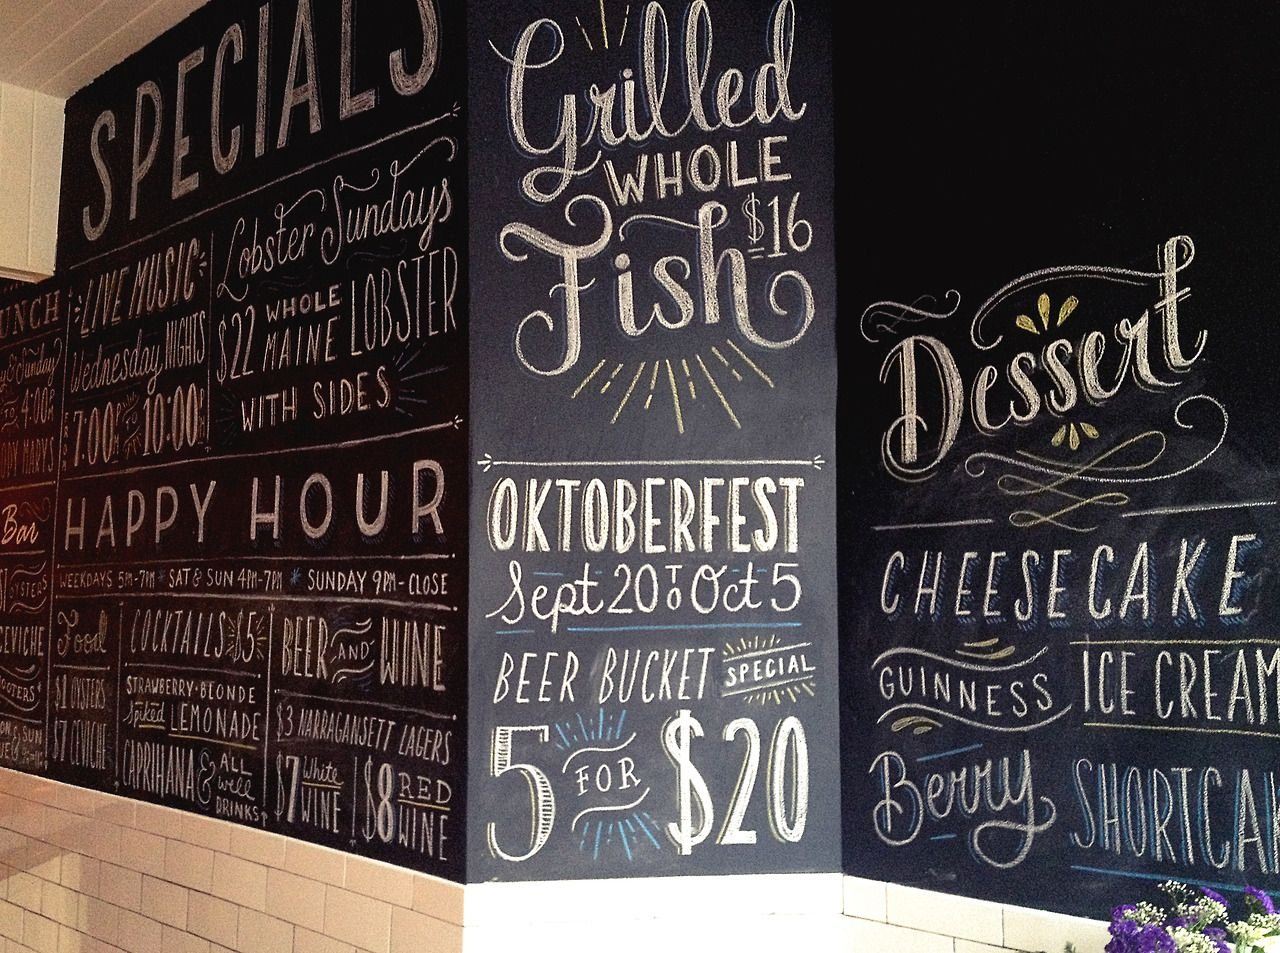 SPECIALS
LIVE MUSIC
Wednesday NIGHTS
7:00PM TO 10:00PM
Lobster Sundays
$22 WHOLE MAINE LOBSTER
WITH SIDES
HAPPY HOUR
WEEKDAYS 5PM-7PM * SAT & SUN 4PM-7PM * SUNDAY 9PM-CLOSE
Food
$1 OYSTERS
$7 CEVICHE
COCKTAILS $5
STRAWBERRY-BLONDE
Spiked LEMONADE
CAPRIHANA & ALL well DRINKS
BEER AND WINE
$3 NARRAGANSETT LAGERS
$7 White WINE
$8 RED WINE
UNCH
y & Sunday
TO 4:00P
MARYS
Bar
OYSTERS
CEVICHE
OOTERS
Grilled
WHOLE
Fish $16
OKTOBERFEST
Sept 20 TO Oct 5
BEER BUCKET SPECIAL
5 FOR $20
Dessert
CHEESECAKE
GUINNESS ICE CREAM
Berry SHORTCAK